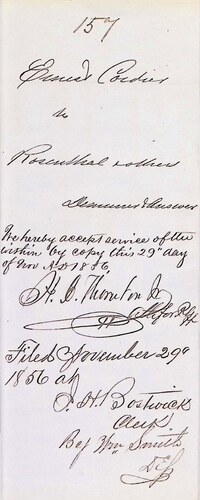 157
Ernest Cordier
vs
Rosenthal & others
Demurrer & Answer
We hereby accept service of the
within by copy this 29" day
of Nov A.D. 1856,
H. D. Thornton Jr
Atty for Plff
Filed November 29th
1856
J. H. Bostwick
Clerk
By Wm Smith